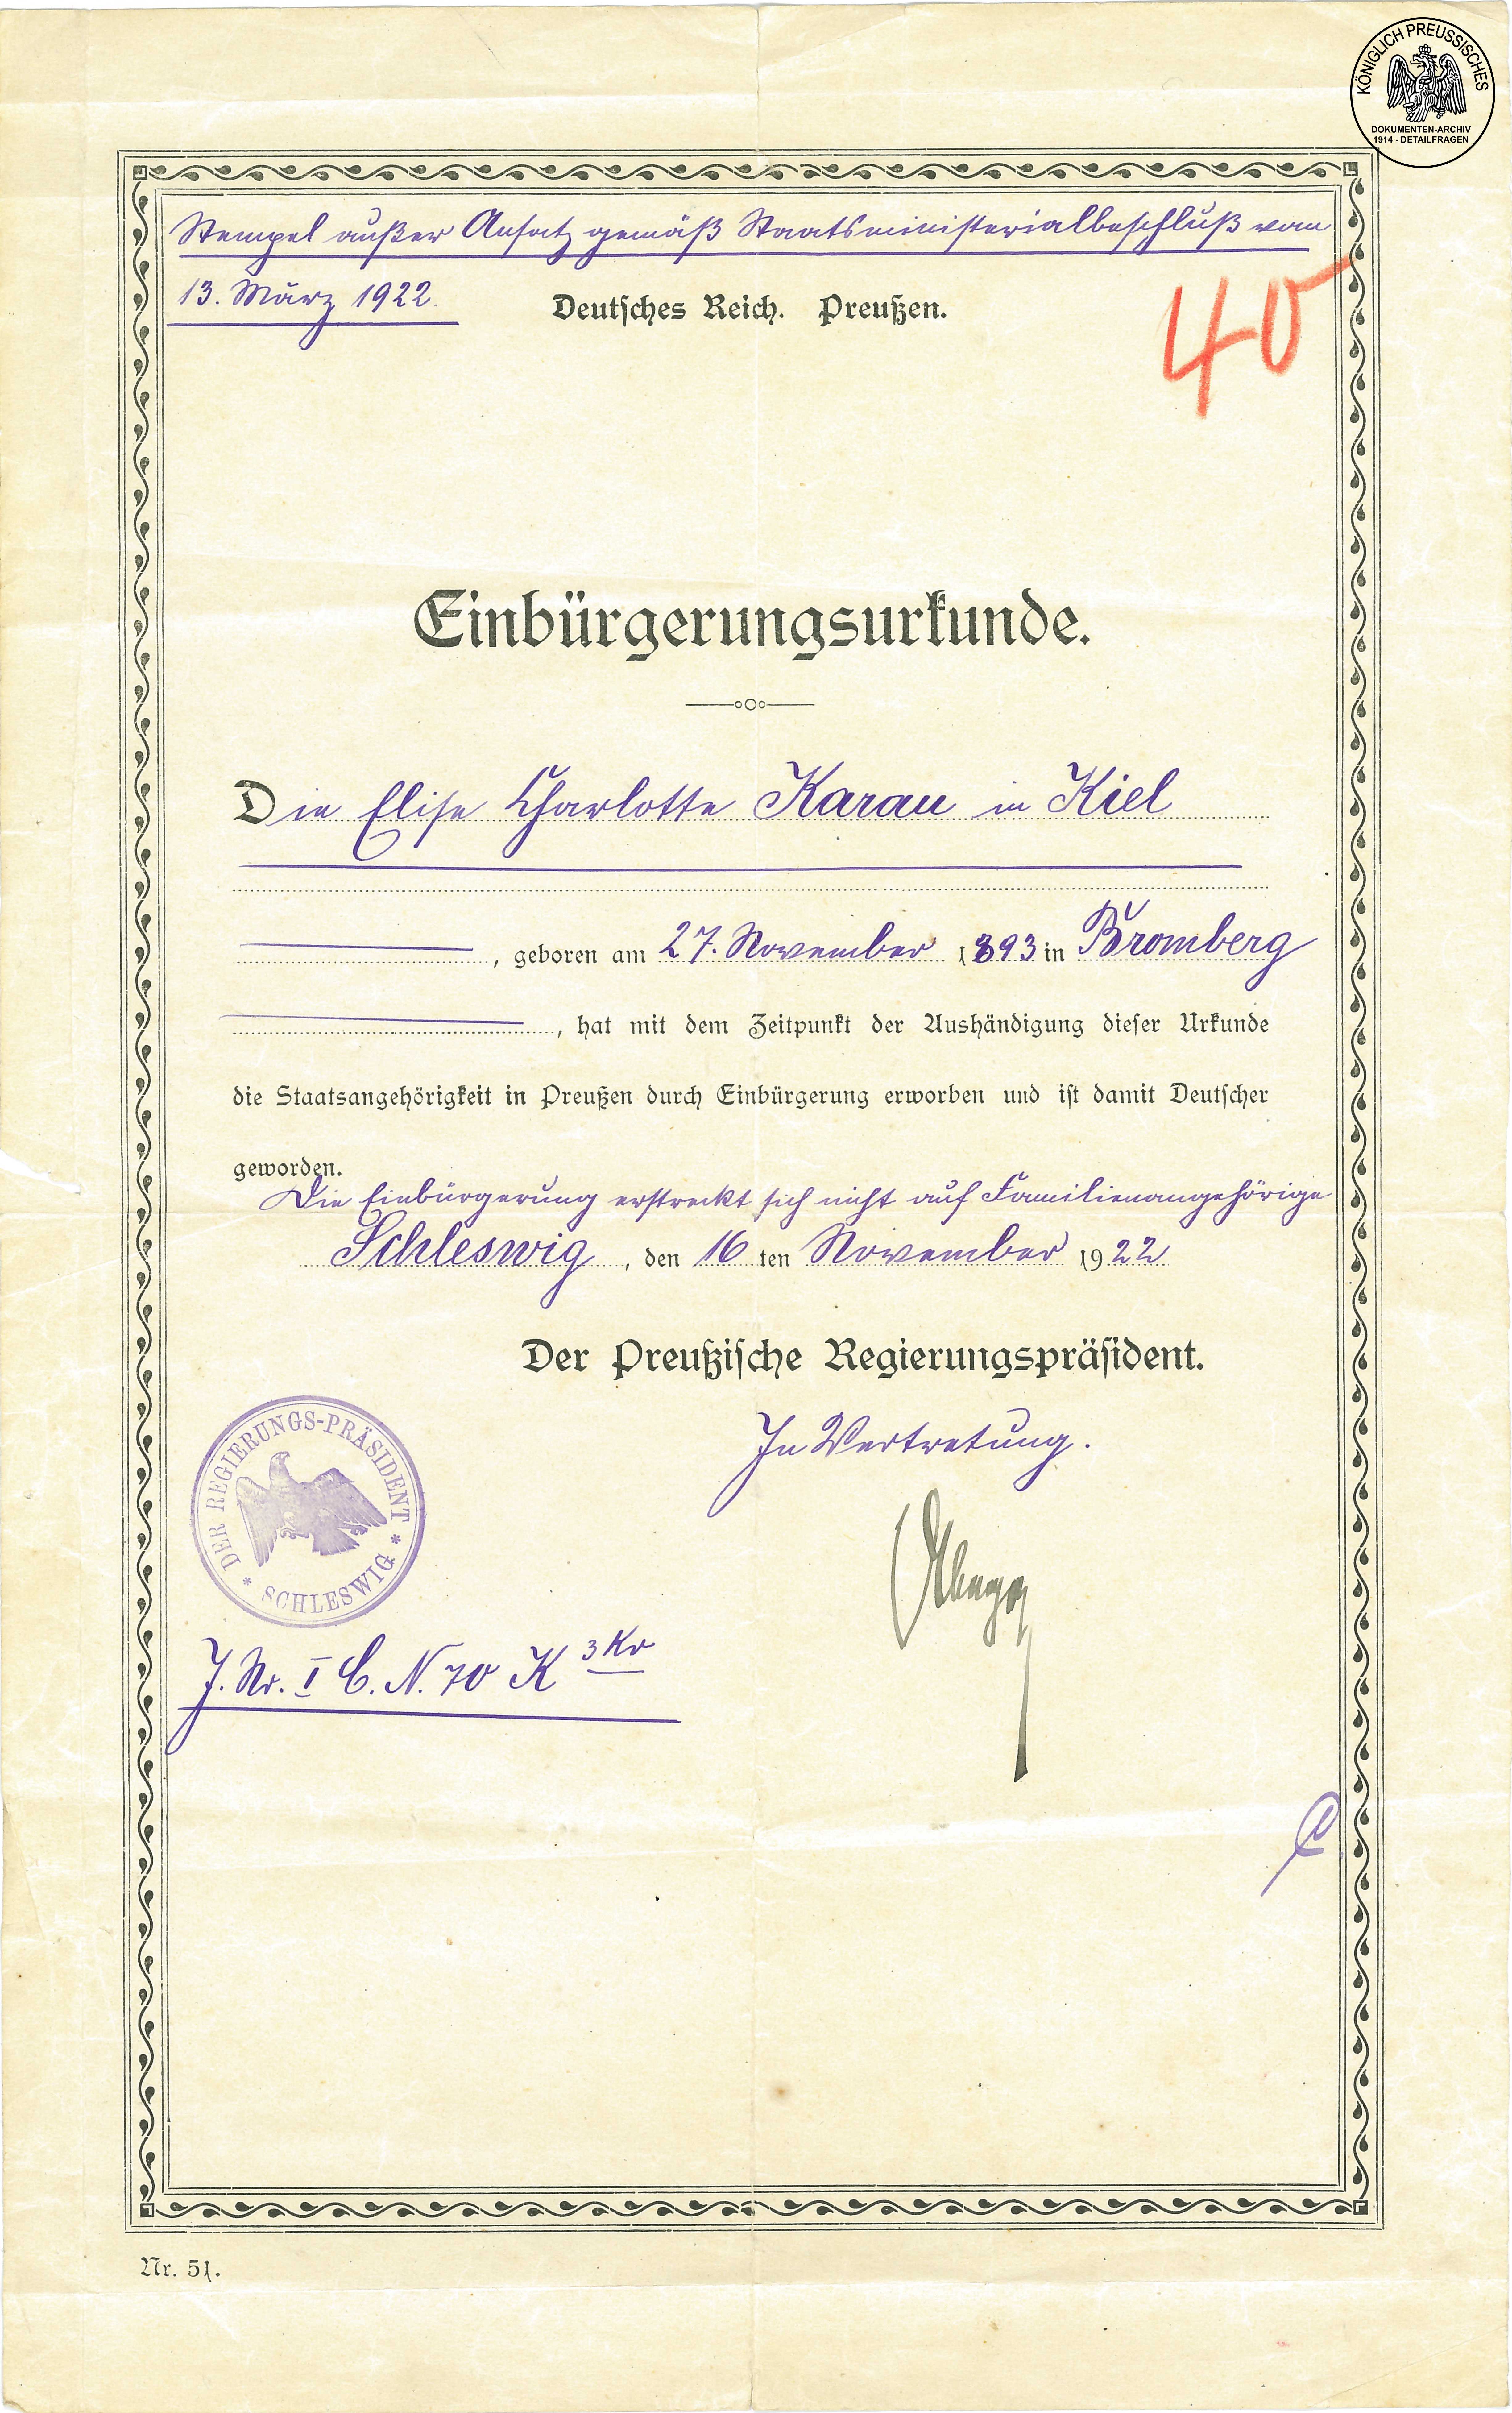 KÖNIGLICH PREUSSISCHES
DOKUMENTEN-ARCHIV
1914 - DETAILFRAGEN
Stempel außer Ansatz gemäß Staatsministerialbeschluß vom
13. März 1922.
Deutsches Reich. Preußen.
40
Einbürgerungsurkunde.
Die Elise Charlotte Karau in Kiel
, geboren am 27. November 1893 in Bromberg
, hat mit dem Zeitpunkt der Aushändigung dieser Urkunde
die Staatsangehörigkeit in Preußen durch Einbürgerung erworben und ist damit Deutscher
geworden.
Die Einbürgerung erstreckt sich nicht auf Familienangehörige
Schleswig, den 16ten November 1922
Der Preußische Regierungspräsident.
In Vertretung.
DER REGIERUNGS-PRÄSIDENT
* SCHLESWIG *
J. Nr. I C. N. 70 K
Nr. 51.